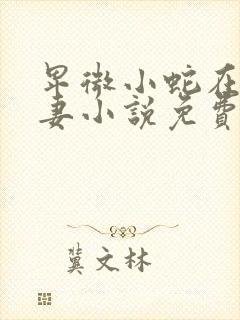 卑微小蛇在
妻小說免費
冀文林